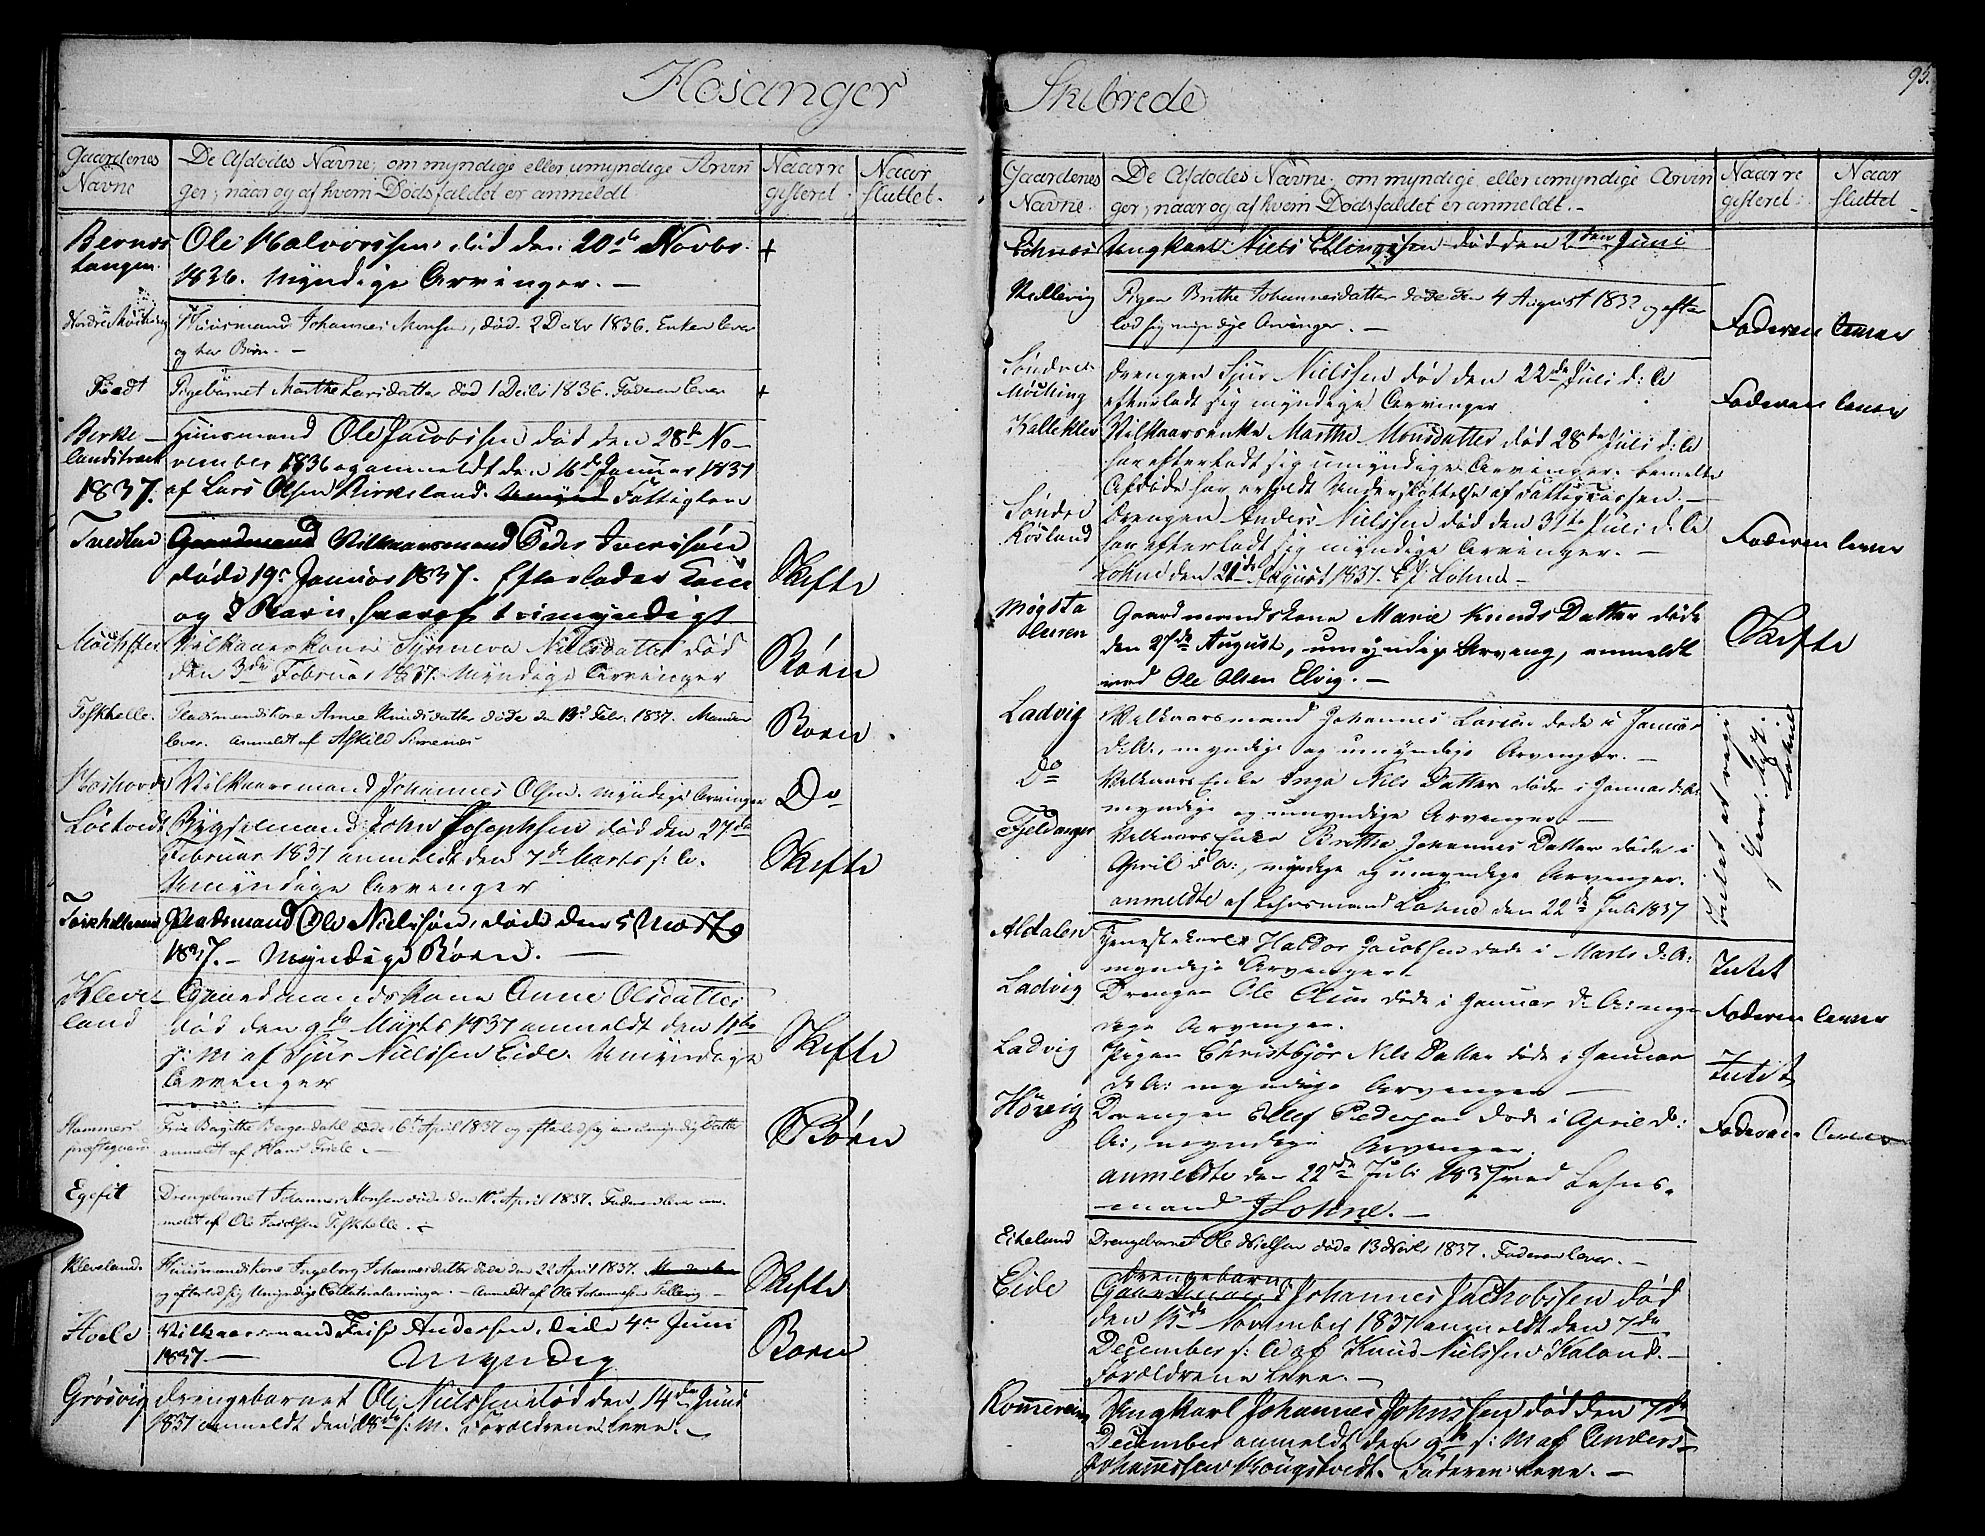 Hosanger
Gaardenes Navne
De Afdødes Navne, om myndige eller umyndige Arvin
ger; naar og af hvem Dødsfaldet er anmeldt
Naar re
gisteret.
Naar
sluttet.
Bernes
tangen.
Ole Halvorssen død den 20de Novbr.
1836. Myndige Arvinger. —
+
Huusmand Johannes Monsen, død 2 Decbr 1836. Enken lever
og har Børn. —
Pigebarnet Marthe Larsdatter død 1 Decbr 1836. Faderen lever
+
Birke-
landstræet
Huusmand Ole Jacobssen død den 28de No-
vember 1836 og anmeldt den 16de Januar 1837
1837.
af Lars Olsen Birkeland. Umynd Fattiglem
Gaardmand Vilkaarsmand Peder Iverssøn
døde 19de Januar 1837. Efterlader Kone
og 2 Børn, hvoraf 1 umyndigt
Skifte
Vilkaarskone Synneva Nielsdatter død
den 3de Februar 1837. Myndige Arvinger
Børn
Toskhelle.
Pladsmandskone Anne Knudsdatter døde den 13de Febr. 1837. Manden
lever. Anmeldt af Askild Simenæs
Børn
Vilkaarsmand Johannes Olsen. Myndige Arvinger
Do
Løtvedt
Bygselmand John Josephsen død den 27de
Februar 1837 anmeldt den 7de Marts s: A.
Umyndige Arvinger
Skifte
Pladsmand Ole Nielssøn, døde den 5 Marts
1837. — Myndige Børn. —
Kleve-
land
Gaardmandskone Anne Olsdatter
død den 9de Marts 1837 anmeldt den 11te
s: M af Sjur Nielssen Eide. Umyndige
Arvinger
Skifte
Hammers
præstegaard
Frue Birgitte Bergendahl døde 6te April 1837 og efterlod sig en umyndig Datter
anmeldt af Hans Friele. —
Børn
Egefit
Drengebarnet Johannes Monsen døde den 10de April 1837. Faderen lever an-
meldt af Ole Jacobsen Toskhelle. —
Kleveland.
Huusmandskone Ingeborg Johannesdatter døde den 22 April 1837.
og efterlod sig umyndige Collateralarvinger. — Anmeldt af Ole Johannesen Tellevig —
Skifte
Hoele
Vilkaarsmand Andersen, døde 4de Juni
1837. — Myndig
Børn
Grøsvig
Drengebarnet Ole Nielssen død den 14de Juni
1837 anmeldt den 18de s: M. Forældrene leve. —
Skibrede
95.
Gaardenes
Navne.
De Afdødes Navne, om myndige eller umyndige Arvin
ger; naar og af hvem Dødsfaldet er anmeldt. —
Naar re
gisteret.
Naar
sluttet
Ungkarl Niels Ellingssen død den 2den Juni
Pigen Brithe Johannesdatter døde den 4 August 1837 og efter
lod sig myndige Arvinger. —
Faderen lever
Søndre
Møcking
Drengen Sjur Nielssen død den 22de Juli d: A
efterladt sig myndige Arvinger
Faderen lever
Kalleklev
Vilkaarsenke Marthe Monsdatter død 28de Juli d: A
har efterladt sig umyndige Arvinger. bemelte
Afdøde har erholdt Understøttelse af Fattigcassen. —
Søndre
Drengen Anders Nielssen død den 31te Juli d: A
har efterladt sig myndige Arvinger. —
Lohne den 21de August 1837. Lohne —
Faderen lever
Møgsta
Gaardmandskone Marie Knuds Datter døde
den 27de August, umyndig Arving, anmeldt
ved Ole Olsen Elvig. —
Skifte
Ladvig
Velkaarsmand Johannes Larsen døde i Januar
d: A:, myndige og umyndige Arvenger. —
Do
Velkaars Enke Inga Nils Datter døde i Januar d: A:
myndige og umyndige Arvenger. —
Fjeldanger
Velkaars Enke Brithe Johannes Datter døde i
April d: A:, myndige og umyndige Arvenger.
anmeldte af Lehnsmand Lohne den 22de Juli 1837
Intet at reg
Lohne
Aldalen
Tjenestekarl Haldor Jacobsen døde i Marts d: A:
myndige Arvenger.
Intet
Ladvig
Drengen Ole Olsen døde i Januar d: A: myn-
dige Arvenger.
Faderen lever
Ladvig
Pigen Christbjør Nils Datter døde i Januar
d: A: myndige Arvenger —
Intet
Drengen Ellef Pedersen døde i April d:
A:, myndige Arvenger.
Faderen lever
anmeldte den 22de Juli 1837 ved Lehns-
mand J Lohne. —
Eikeland
Drengebarnet Ole Nielsen døde 13 1837. Faderen lever. —
Eide
Drengebarn
Gaardmand Johannes Jachobssen død
den 15de November 1837 anmeldt den 7de
December s: A af Knud Nielssen Kaland. —
Forældrene leve. —
Ungkarl Johannes Johnssen død den 7de
December anmeldt den 9de s: M af Anders
Johannessen Hougstvedt. Faderen leve. —